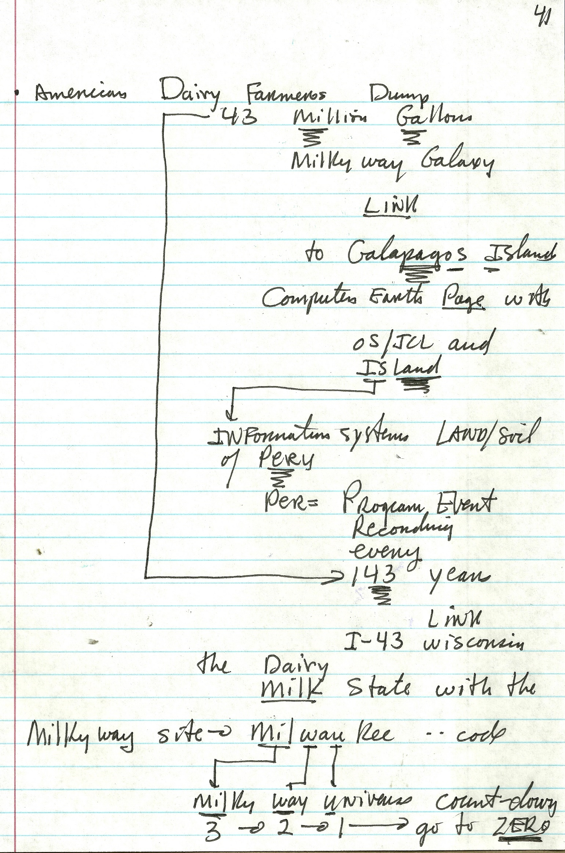 41
Amenican Dairy Farmers Dump
43 Million Gallons
Milky way Galaxy
LINK
to Galapagos Island
Computer Earth Page with
OS/JCL and
ISland
INFormation systems LAND/Soil
of PERY
PER= Program Event
Recording
every
143 years
LINK
I-43 wisconsin
the Dairy
Milk State with the
Milky way site → Milwaukee .. code
Milky way universe count-down
3 → 2 → 1 → go to ZERO